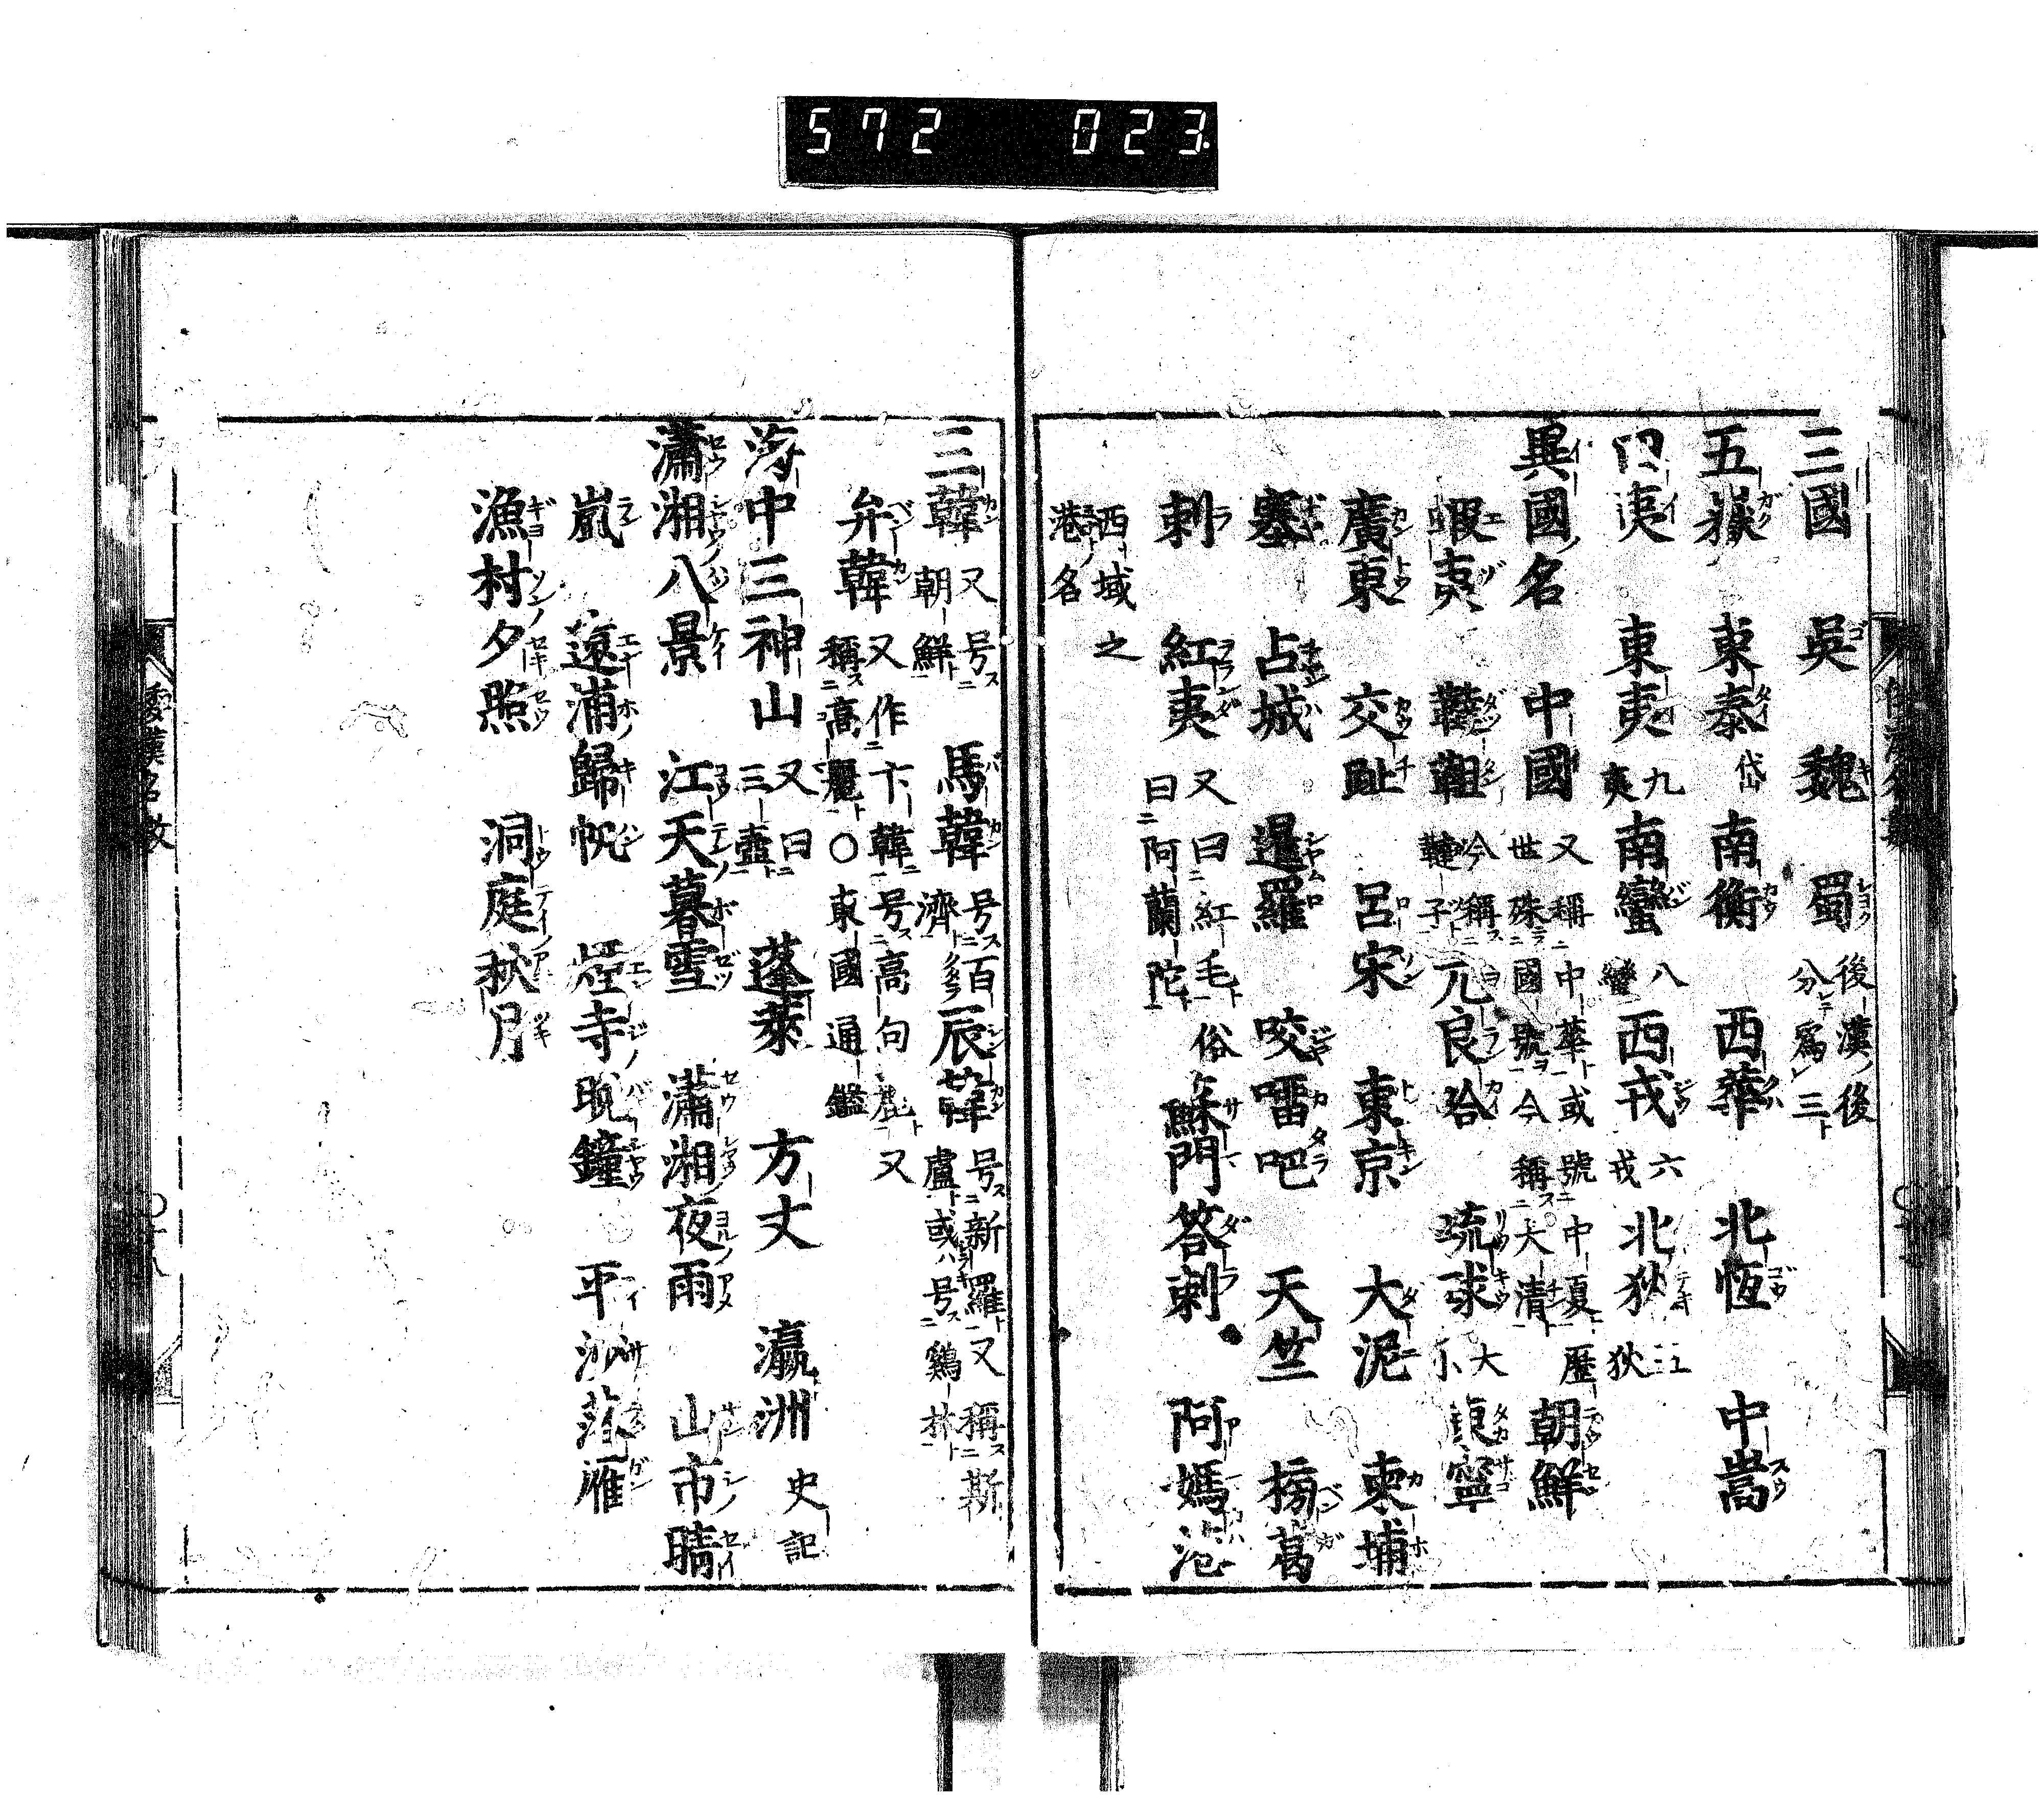 572 023
三國 吳 魏 蜀 後漢ノ後分レテ爲ル三ト
五嶽 東泰 岱 南衡 西華 北恆 中嵩
四夷 東夷 九夷 南蠻 八蠻 西戎 六戎 北狄 狄
異國名 中國 又稱ニ中華ト或號ニ中夏ト歷世殊ニ國號ヲ今稱ス大清ト 朝鮮
蝦夷 韃靼 今稱ス韃子ト 兀良哈 琉球 大
廣東 交趾 呂宋 東京 大泥 柬埔
塞 占城 暹羅 咬𠺕吧 天竺 榜葛
剌 紅夷 又曰ニ紅毛ト俗曰ニ阿蘭陀ト 蘇門答剌 阿媽港
西域之港ノ名
三韓 又号ス朝鮮ト 馬韓 号ス百濟ト 辰韓 号ス新羅ト又稱ス斯盧ト或ハ号ス鷄林ト
弁韓 又作ニ卞韓ニ号ス高句麗ト又稱ス高麗ト○東國通鑑
海中三神山 又曰三壺ト 蓬萊 方丈 瀛洲 史記
瀟湘八景 江天暮雪 瀟湘夜雨 山市晴
嵐 遠浦歸帆 煙寺晩鐘 平沙落雁
漁村夕照 洞庭秋月
倭漢名數